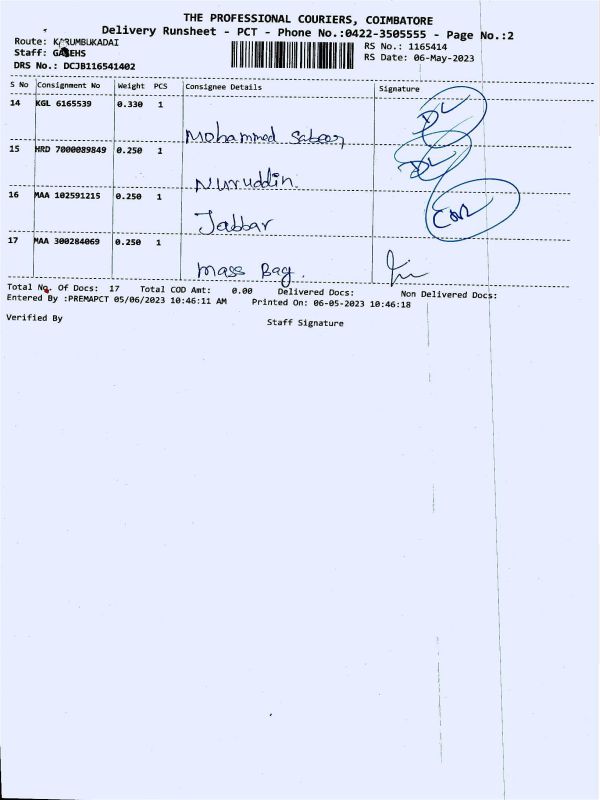 THE PROFESSIONAL COURIERS, COIMBATORE
Delivery Runsheet - PCT - Phone No.:0422-3505555 - Page No.:2
Route: KARUMBUKADAI
RS No.: 1165414
Staff: GANEHS
RS Date: 06-May-2023
DRS No.: DCJB116541402
S No Consignment No Weight PCS Consignee Details Signature
14 KGL 6165539 0.330 1
Mohammed Saboor
DL
15 HRD 7000089849 0.250 1
Nurruddin.
DL
16 MAA 102591215 0.250 1
Jabbar
17 MAA 300284069 0.250 1
Mass Bag.
Total No. Of Docs: 17 Total COD Amt: 0.00 Delivered Docs: Non Delivered Docs:
Entered By :PREMAPCT 05/06/2023 10:46:11 AM Printed On: 06-05-2023 10:46:18
Verified By Staff Signature